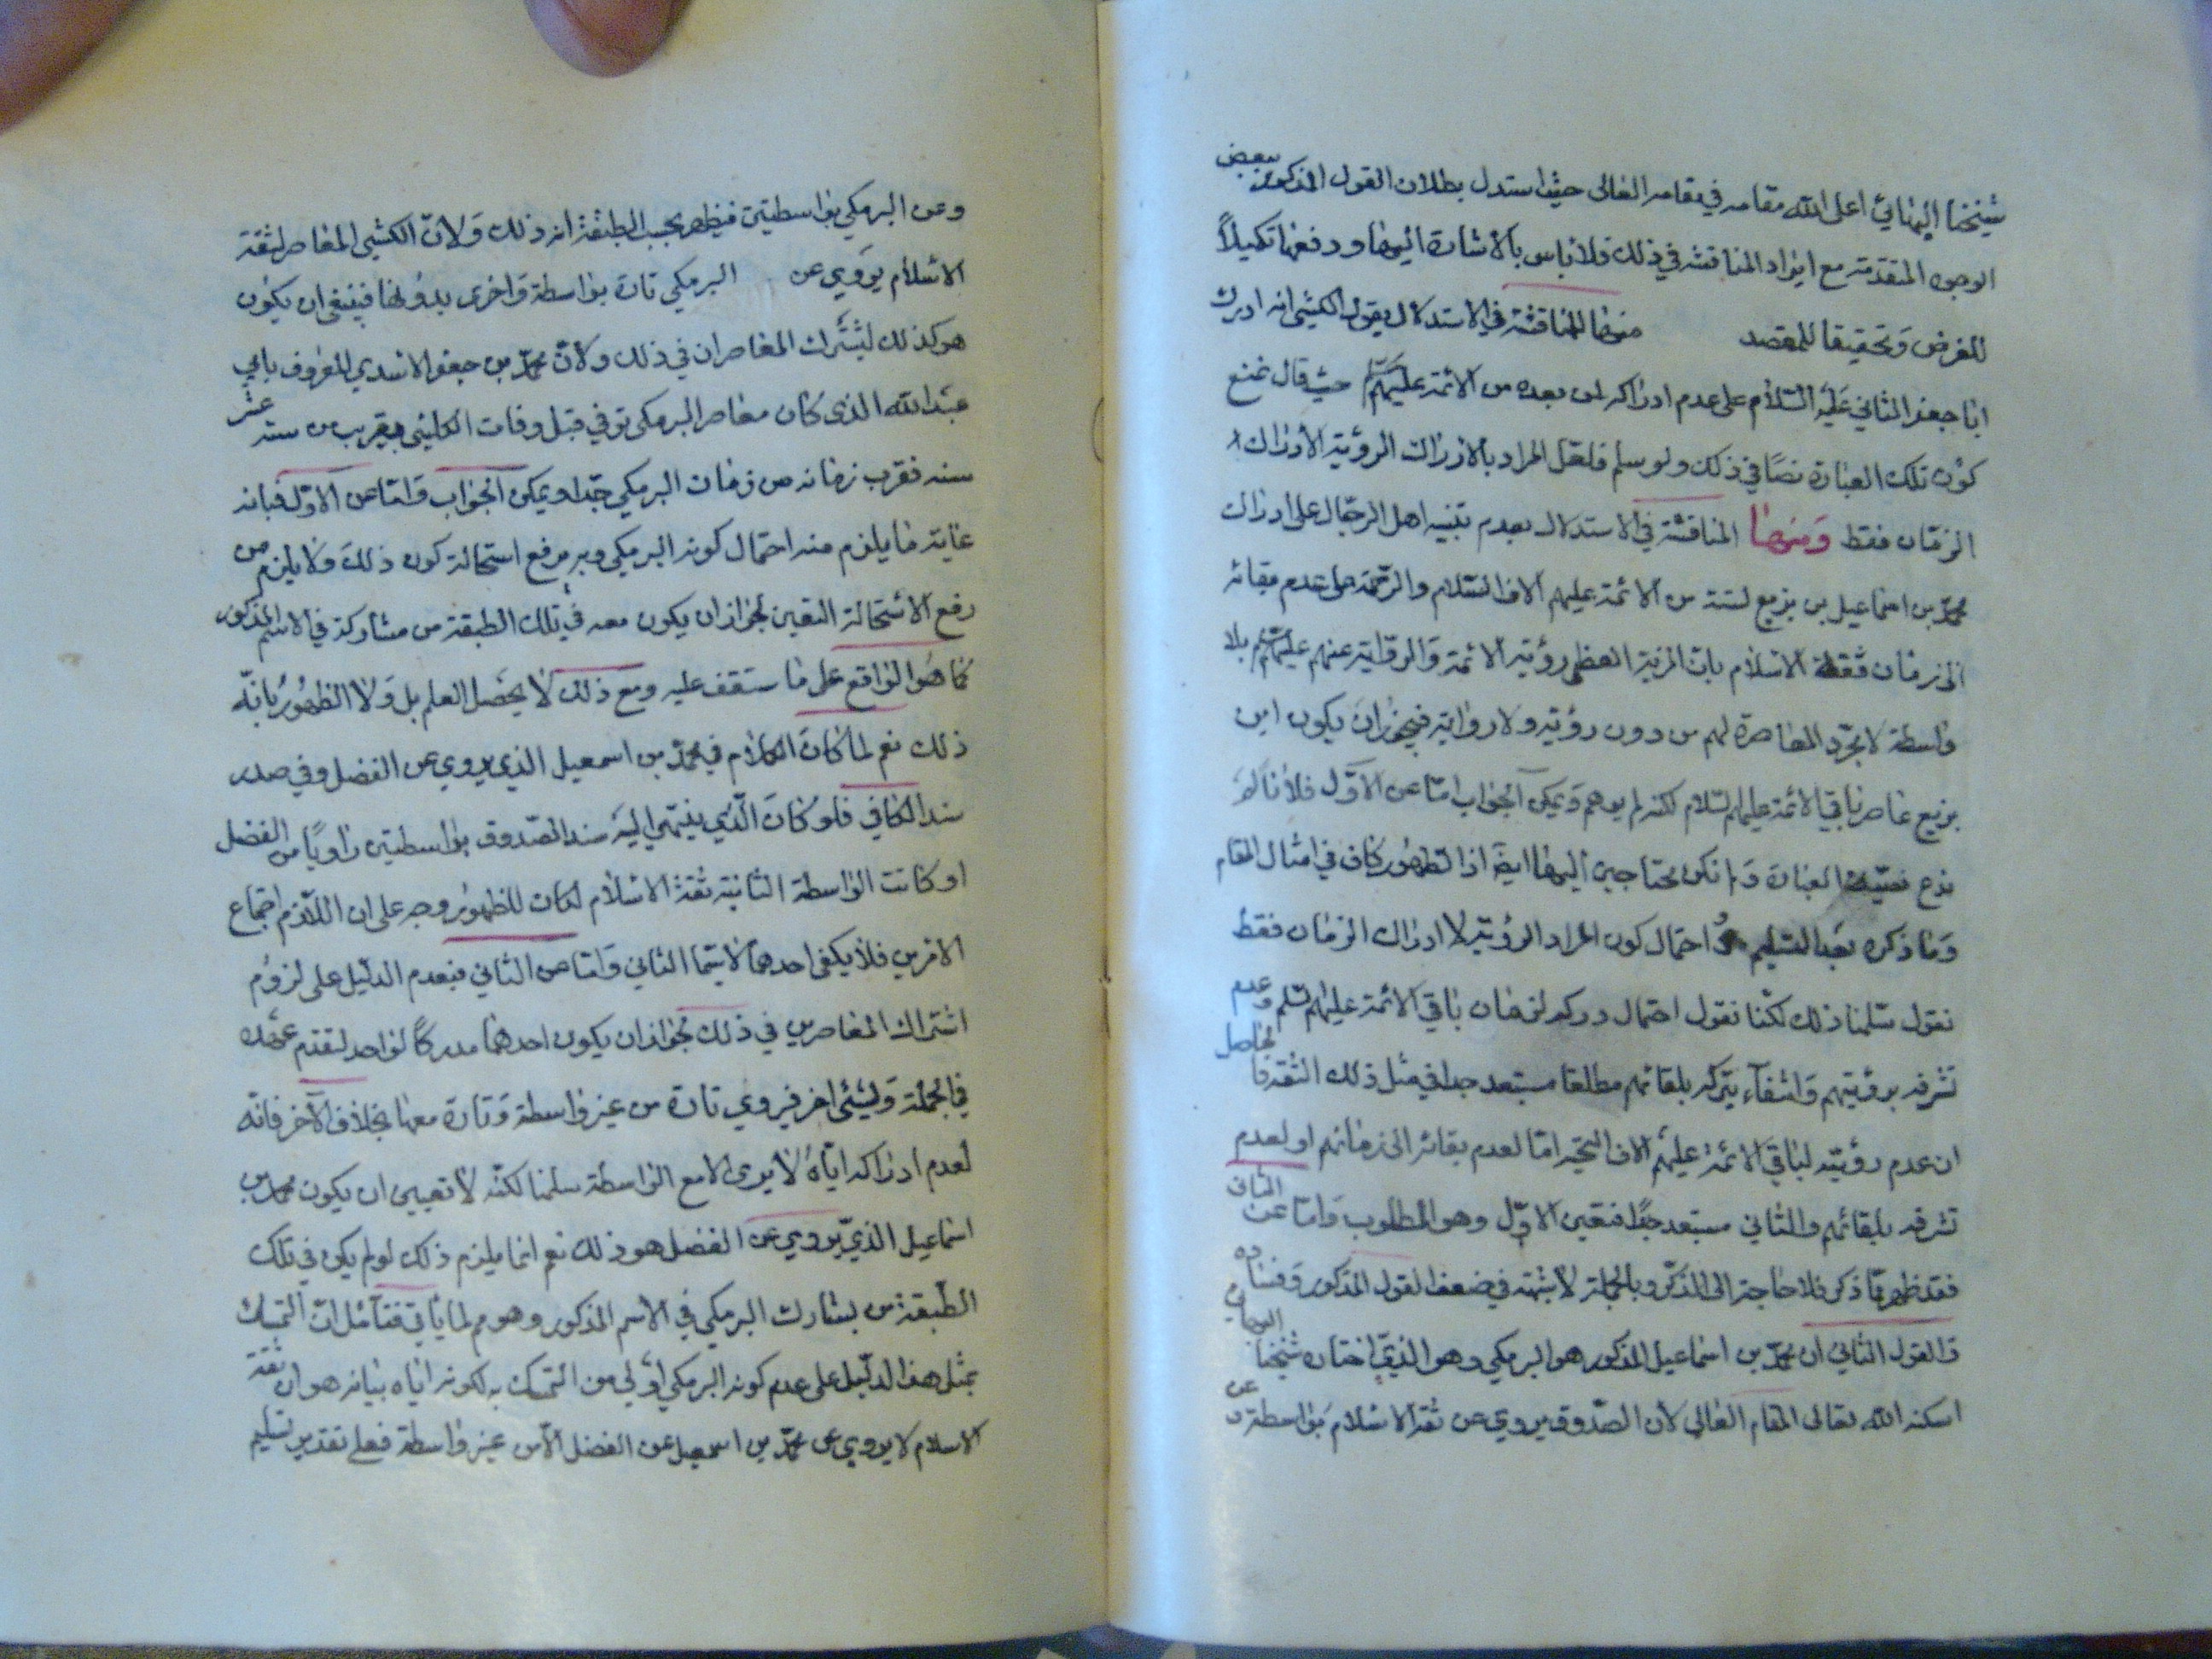 شيخنا البهائي اعلى الله مقامه في مقامه العالى حيث استدل بطلان القول المذكور ببعض
الوجوه المتقدمة مع ايراد المناقشة في ذلك فلا باس بالاشارة اليها ودفعها تكميلاً
للغرض وتحقيقا للمقصد منها المناقشة في الاستدلال بقول الكشي انه ادرك
ابا جعفر الثاني عليه السلام على عدم ادراكه لمن بعده من الائمة عليهم حيث قال نمنع
كون تلك العبارة نصا في ذلك ولو سلم فلعل المراد بالادراك الرؤية لا ادراك
الزمان فقط ومنها المناقشة في الاستدلال بعدم تنبيه اهل الرجال على ادراك
محمد بن اسماعيل بن بزيع لستة من الائمة عليهم الاف السلام والرحمة على عدم بقائه
الى زمان ثقة الاسلام بان المزية العظمى رؤية الائمة والرواية عنهم عليهم بلا
واسطة لا مجرد المعاصرة لهم من دون رؤية ولا رواية فيجوز ان يكون ابن
بزيع عاصر باقي الائمة عليهم السلام لكنه لم يرهم ويمكن الجواب اما عن الاول فلانا لم
ندع نصية العبارة ولم نكن محتاجين اليها ايضا اذ الظهور كاف في امثال المقام
وما ذكره بعد التسليم احتمال كون المراد الرؤية لا ادراك الزمان فقط
نقول سلمنا ذلك لكنا نقول احتمال دركه لزمان باقي الائمة عليهم وعدم
تشرفه برؤيتهم وانتفاء تبركه بلقائهم مطلقا مستبعد جدا في مثل ذلك الثقة فالحاصل
ان عدم رؤيته لباقي الائمة عليهم الاف التحية اما لعدم بقائه الى زمانهم او لعدم
تشرفه بلقائهم والثاني مستبعد جدا فتعين الاول وهو المطلوب واما عن الثاني
فقد ظهر مما ذكر فلا حاجة الى الذكر وبالجملة لا شبهة في ضعف القول المذكور وفساده
والقول الثاني ان محمد بن اسماعيل المذكور هو البرمكي وهو الذي اختاره شيخنا البهائي
اسكنه الله تعالى المقام العالي لان الصدوق يروي عن ثقة الاسلام بواسطة
وعن البرمكي بواسطتين فيظهر بحسب الطبقة انه ذلك ولان الكشي المعاصر لثقة
الاسلام يروي عن البرمكي تارة بواسطة واخرى بدونها فينبغي ان يكون
هو كذلك ليشترك المعاصران في ذلك ولان محمد بن جعفر الاسدي المعروف بابي
عبد الله الذي كان معاصر البرمكي توفي قبل وفات الكليني بقريب من ستة عشر
سنه فقرب زمانه من زمان البرمكي جدا ويمكن الجواب واما عن الاول فبانه
غاية ما يلزم منه احتمال كونه البرمكي وبه يرفع استحالة كون ذلك ولا يلزم من
رفع الاستحالة التعين لجواز ان يكون معه في تلك الطبقة من مشاركه في الاسم المذكور
كما هو الواقع على ما ستقف عليه ومع ذلك لا يحصل العلم بل ولا الظهور بانه
ذلك نعم لما كان الكلام في محمد بن اسمعيل الذي يروي عن الفضل وفي صدر
سند الكافي فلو كان الذي ينتهي اليه سند الصدوق بواسطتين راويا من الفضل
او كانت الواسطة الثانية ثقة الاسلام لكان للظهور وجه على ان اللازم اجتماع
الامرين فلا يكفي احدهما لا سيما الثاني واما عن الثاني فبعدم الدليل على لزوم
اشتراك المعاصرين في ذلك لجواز ان يكون احدهما مدركا لواحد لتقدم عهده
في الجملة ولشيئ اخر فيروي تارة من غير واسطة وتارة معها بخلاف الآخر فانه
لعدم ادراكه اياه لا يروى الا مع الواسطة سلمنا لكنه لا تعيين ان يكون محمد بن
اسماعيل الذي يروي عن الفضل هو ذلك نعم انما يلزم ذلك لو لم يكن في تلك
الطبقة من يشارك البرمكي في الاسم المذكور وهو مم لما ياتي فتامل ان التمسك
بمثل هذا الدليل على عدم كونه البرمكي اولى من التمسك به لكونه اياه بيانه هو ان ثقة
الاسلام لا يروي عن محمد بن اسمعيل عن الفضل الا من غير واسطة فعلى تقدير تسليم